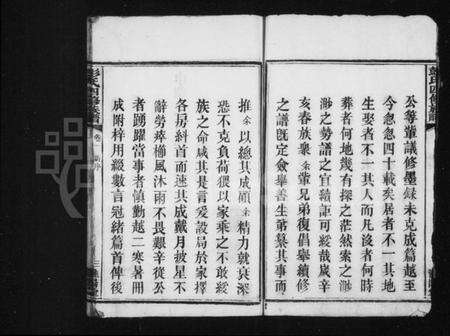 公等輩議修墨錄未克成篇越至
今忽忽四十載矣居者不一其地
生娶者不一其人而凡沒者何時
葬者何地幾有探之茫然索之渺
渺之勢譜之宜續詎可緩哉歲辛
亥春族衆余輩兄弟復倡舉續修
之譜旣定僉舉善生弟纂其事而
推余以總其成顧余精力就衰深
恐不克負荷猥以家乘之不敢緩
族之命咸其是言爰設局於家擇
各房糾首而速其成戴月披星不
辭勞瘁櫛風沐雨不畏艱辛從公
者踴躍當事者慎勤越二寒暑用
成附梓用綴數言冠緒篇首俾後
彭氏四修族譜
卷